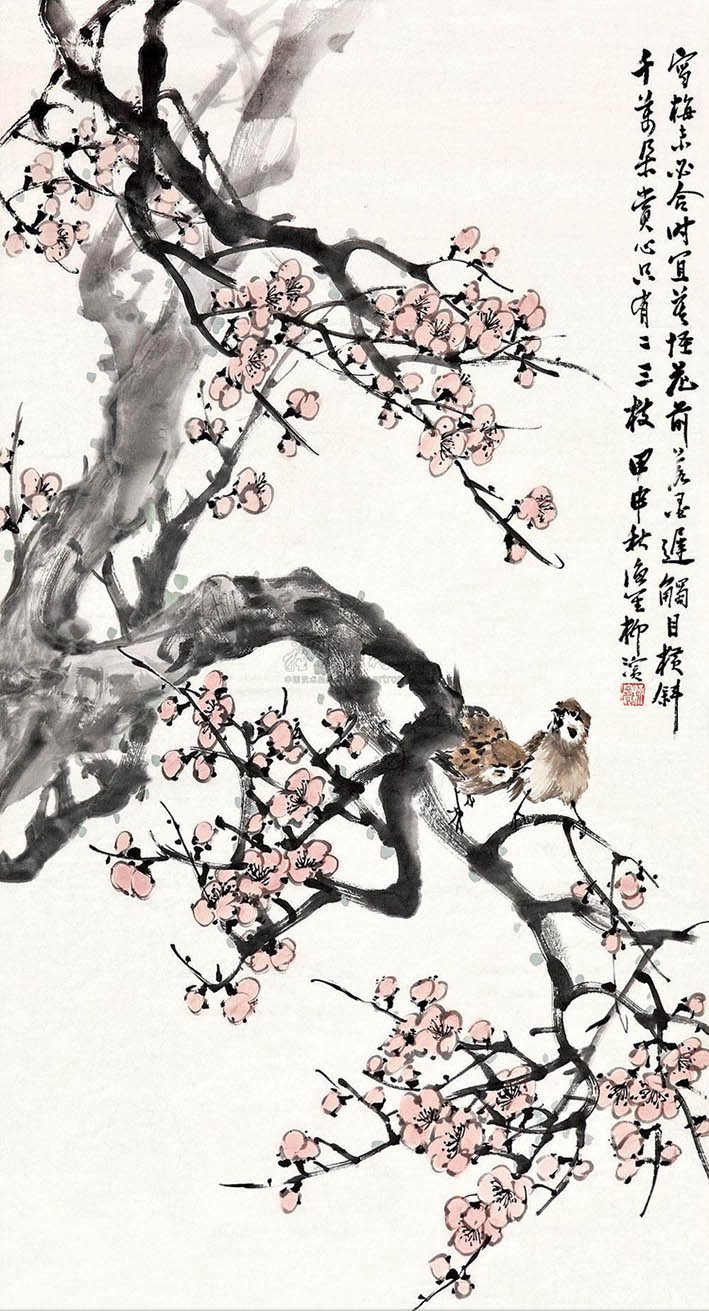 寫梅未必合时宜莫怪花前落墨遲觸目横斜
千萬朵賞心只有二三枝 甲申秋渔笙柳滨